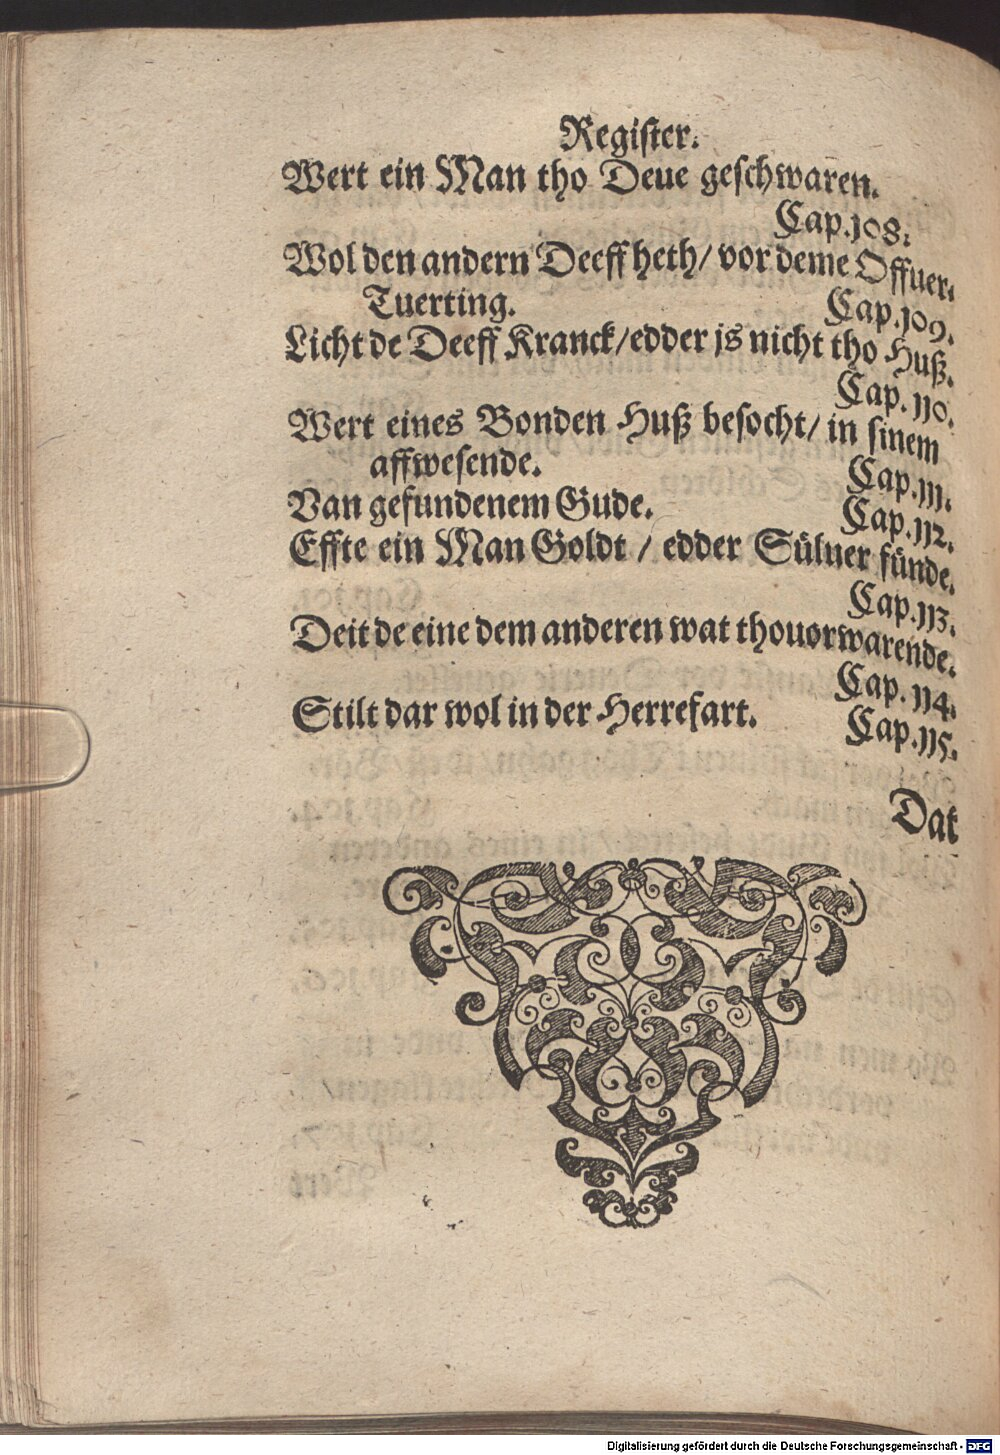 Register.
Wert ein Man tho Deue geschwaren.
Cap.108.
Wol den andern Deeff heth/ vor deme Offuer,
Tuerting. Cap.109.
Licht de Deeff Kranck/edder js nicht tho Huß.
Cap.110.
Wert eines Bonden Huß besocht/ in sinem
affwesende. Cap.111.
Van gefundenem Gude. Cap.112.
Effte ein Man Goldt / edder Süluer fünde.
Cap.113.
Deit de eine dem anderen wat thouorwarende.
Cap.114.
Stilt dar wol in der Herrefart. Cap.115.
Dat
Digitalisierung gefördert durch die Deutsche Forschungsgemeinschaft - DFG